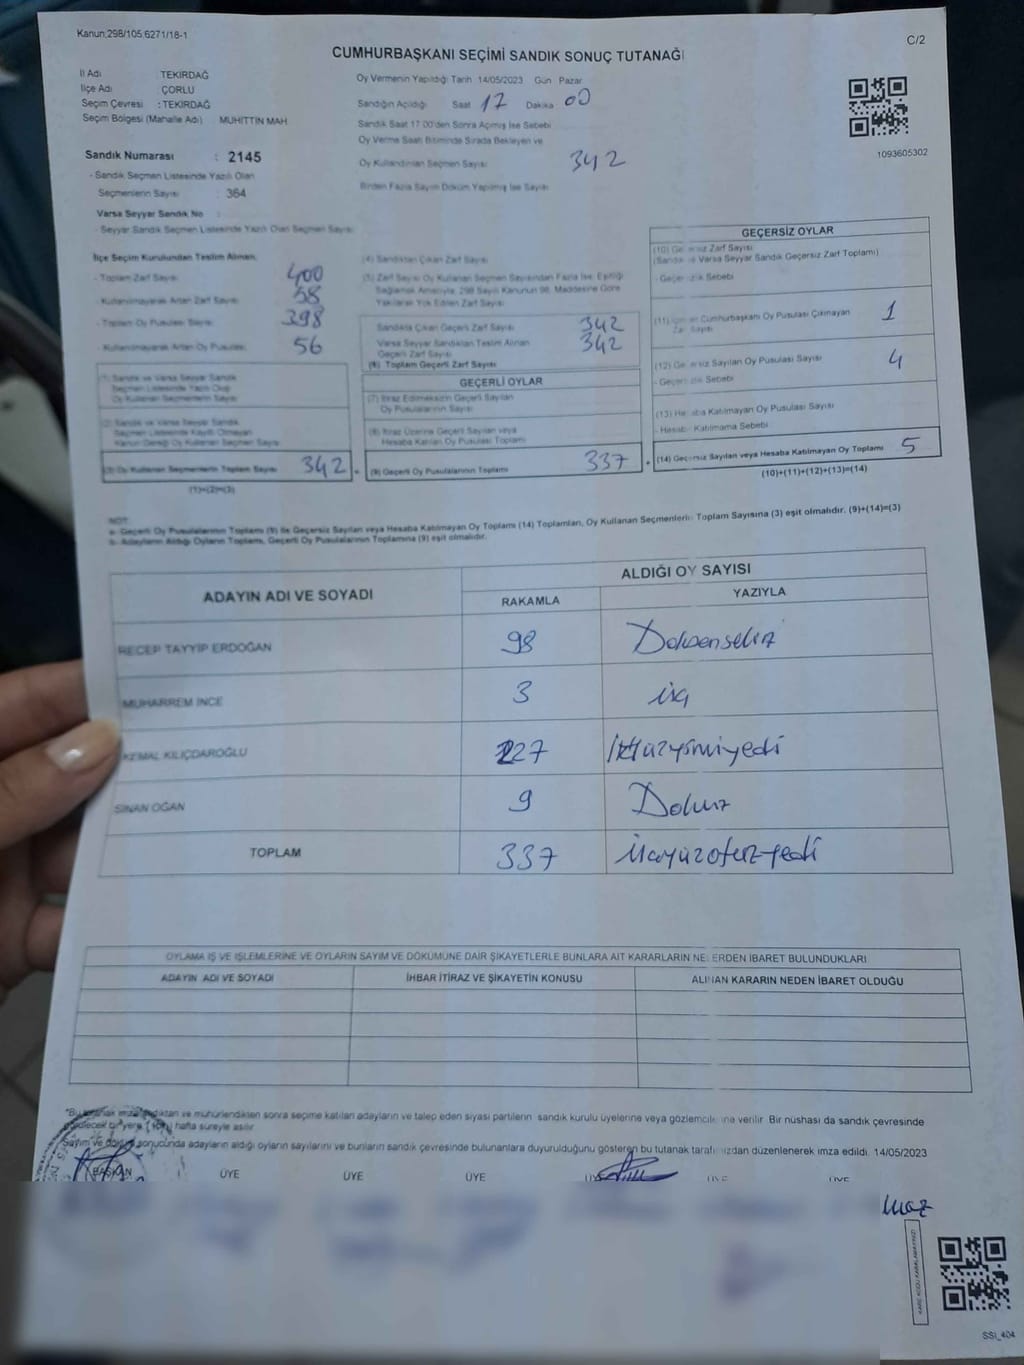 Kanun;298/105,6271/18-1
C/2
CUMHURBAŞKANI SEÇİMİ SANDIK SONUÇ TUTANAĞI
İl Adı : TEKİRDAĞ
İlçe Adı : ÇORLU
Seçim Çevresi : TEKİRDAĞ
Seçim Bölgesi (Mahalle Adı) : MUHİTTİN MAH.
Sandık Numarası : 2145
- Sandık Seçmen Listesinde Yazılı Olan
Seçmenlerin Sayısı : 364
Varsa Seyyar Sandık No :
- Seyyar Sandık Seçmen Listesinde Yazılı Olan Seçmen Sayısı
Oy Vermenin Yapıldığı Tarih 14/05/2023 Gün Pazar
Sandığın Açıldığı Saat 17 Dakika 00
Sandık Saat 17.00'den Sonra Açılmış İse Sebebi
Oy Verme Saati Bitiminde Sırada Bekleyen ve
Oy Kullandırılan Seçmen Sayısı 342
Birden Fazla Sayım Döküm Yapılmış İse Sayısı
1093605302
İlçe Seçim Kurulundan Teslim Alınan;
- Toplam Zarf Sayısı 400
- Kullanılmayarak Artan Zarf Sayısı 58
- Toplam Oy Pusulası Sayısı 398
- Kullanılmayarak Artan Oy Pusulası 56
(1) Sandık ve Varsa Seyyar Sandık
Seçmen Listesinde Yazılı Olup
Oy Kullanan Seçmenlerin Sayısı
(2) Sandık ve Varsa Seyyar Sandık
Seçmen Listesinde Kayıtlı Olmayan
Kanun Gereği Oy Kullanan Seçmen Sayısı
(3) Oy Kullanan Seçmenlerin Toplam Sayısı 342
(1)+(2)=(3)
(4) Sandıktan Çıkan Zarf Sayısı
(5) Zarf Sayısı Oy Kullanan Seçmen Sayısından Fazla İse, Eşitliği
Sağlamak Amacıyla, 298 Sayılı Kanunun 98. Maddesine Göre
Yakılarak Yok Edilen Zarf Sayısı
Sandıkta Çıkan Geçerli Zarf Sayısı 342
Varsa Seyyar Sandıktan Teslim Alınan
Geçerli Zarf Sayısı 342
(6) Toplam Geçerli Zarf Sayısı
GEÇERLİ OYLAR
(7) İtiraz Edilmeksizin Geçerli Sayılan
Oy Pusulalarının Sayısı
(8) İtiraz Üzerine Geçerli Sayılan veya
Hesaba Katılan Oy Pusulası Toplamı
(9) Geçerli Oy Pusulalarının Toplamı 337
GEÇERSİZ OYLAR
(10) Zarf Sayısı
(Sandık ve Varsa Seyyar Sandık Geçersiz Zarf Toplamı)
- Sebebi
(11) Cumhurbaşkanı Oy Pusulası Çıkmayan
Sayısı 1
(12) Sayılan Oy Pusulası Sayısı 4
- Sebebi
(13) Katılmayan Oy Pusulası Sayısı
- Katılmama Sebebi
(14) Geçersiz Sayılan veya Hesaba Katılmayan Oy Toplamı 5
(10)+(11)+(12)+(13)=(14)
NOT:
a- Geçerli Oy Pusulalarının Toplamı (9) ile Geçersiz Sayılan veya Hesaba Katılmayan Oy Toplamı (14) Toplamları, Oy Kullanan Seçmenlerin Toplam Sayısına (3) eşit olmalıdır. (9)+(14)=(3)
b- Adayların Aldığı Oyların Toplamı, Geçerli Oy Pusulalarının Toplamına (9) eşit olmalıdır.
ADAYIN ADI VE SOYADI
ALDIĞI OY SAYISI
RAKAMLA YAZIYLA
RECEP TAYYİP ERDOĞAN 98 Doksansekiz
MUHARREM İNCE 3 üç
KEMAL KILIÇDAROĞLU 227 İkiyüzyirmiyedi
SİNAN OĞAN 9 Dokuz
TOPLAM 337 üçyüzotuzyedi
OYLAMA İŞ VE İŞLEMLERİNE VE OYLARIN SAYIM VE DÖKÜMÜNE DAİR ŞİKAYETLERLE BUNLARA AİT KARARLARIN NELERDEN İBARET BULUNDUKLARI
ADAYIN ADI VE SOYADI İHBAR İTİRAZ VE ŞİKAYETİN KONUSU ALINAN KARARIN NEDEN İBARET OLDUĞU
*Bu tutanak imzalandıktan ve mühürlendikten sonra seçime katılan adayların ve talep eden siyasi partilerin sandık kurulu üyelerine veya gözlemcilerine verilir. Bir nüshası da sandık çevresinde
hafta süreyle asılır.
Sayım ve döküm sonucunda adayların aldığı oyların sayılarını ve bunların sandık çevresinde bulunanlara duyurulduğunu gösteren bu tutanak tarafımızdan düzenlenerek imza edildi. 14/05/2023
BAŞKAN ÜYE ÜYE ÜYE
SSİ_404